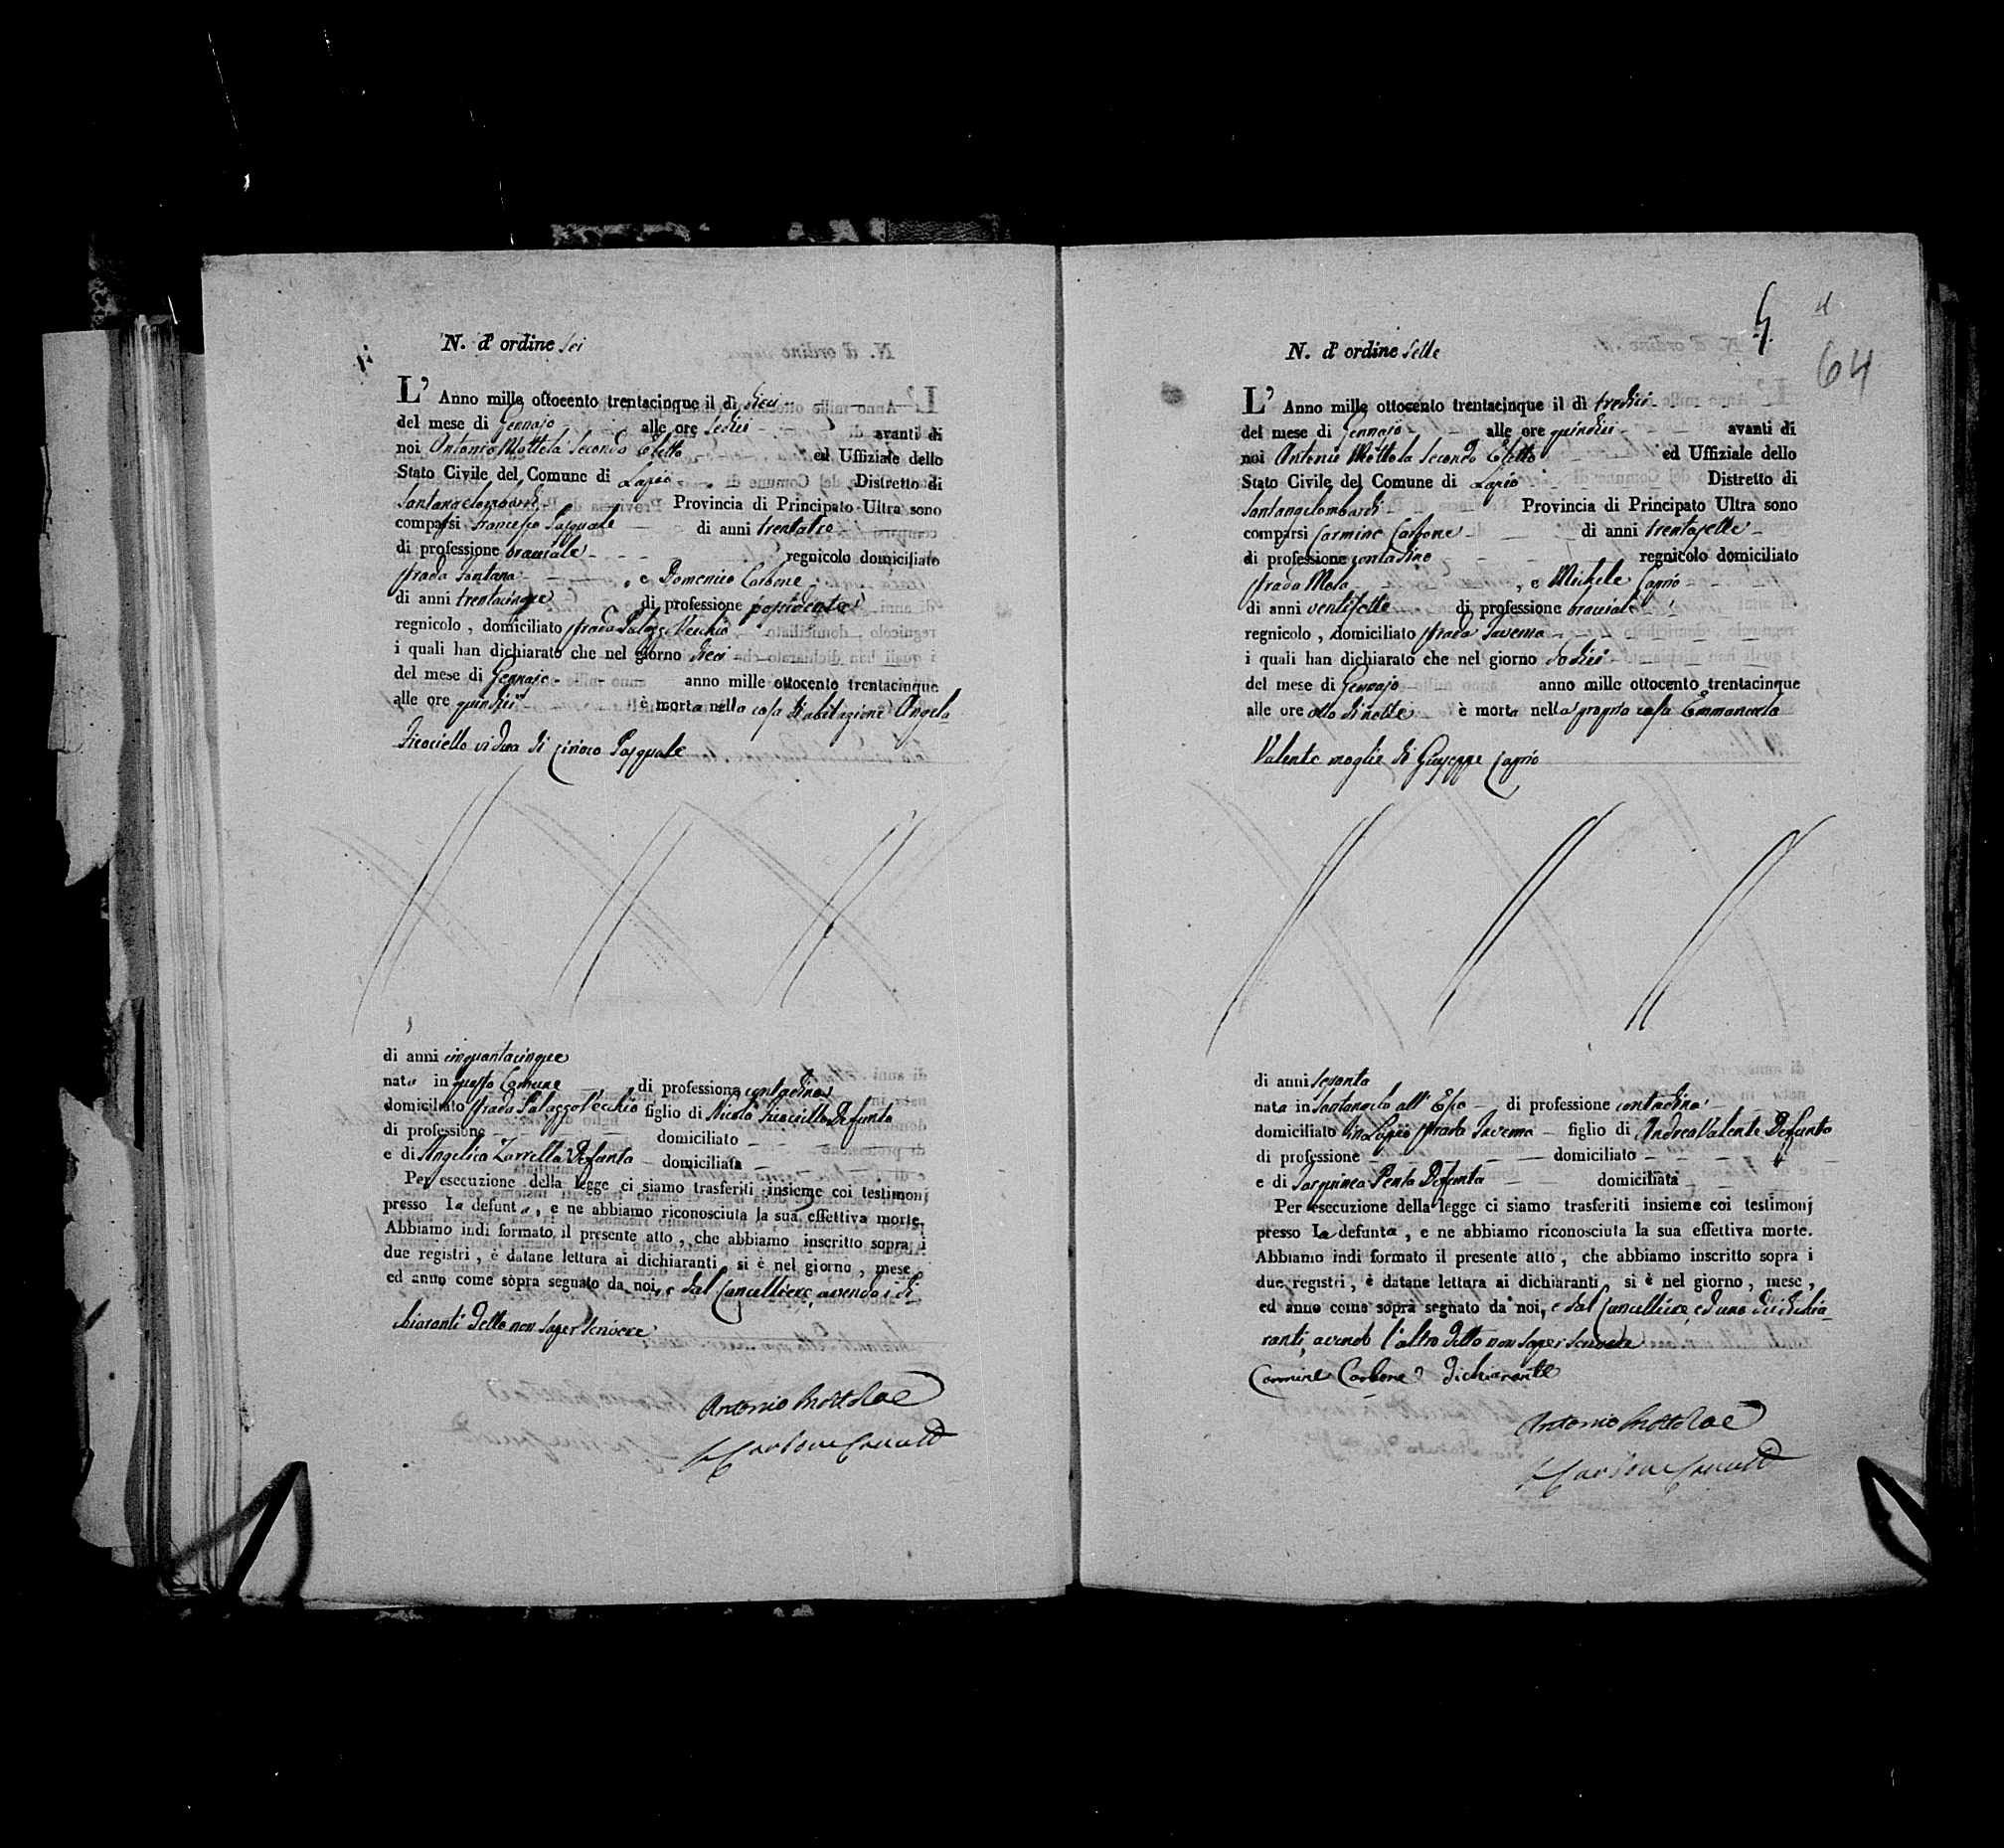 N. d' ordine sei
L' Anno mille ottocento trentacinque il dì dieci
del mese di Gennajo alle ore sedici avanti di
noi Antonio Mottola Secondo Eletto ed Uffiziale dello
Stato Civile del Comune di Lapio Distretto di
Santangelombardi Provincia di Principato Ultra sono
comparsi Francesco Pasquale di anni trentatre
di professione bracciale regnicolo domiciliato
strada Fontana , e Domenico Carbone
di anni trentacinque di professione possidente
regnicolo , domiciliato strada Palazzo Vecchio
i quali han dichiarato che nel giorno dieci
del mese di Gennajo anno mille ottocento trentacinque
alle ore quindici è morta nella casa di abitazione Angela
vidua di Ciriaco Pasquale
di anni cinquantacinque
nata in questo Comune di professione contadina
domiciliato strada Palazzo Vecchio figlio di Nicola Defunto
di professione domiciliato
e di Angelica Zarrella Defunta domiciliata
Per esecuzione della legge ci siamo trasferiti insieme coi testimonj
presso la defunta , e ne abbiamo riconosciuta la sua effettiva morte.
Abbiamo indi formato il presente atto , che abbiamo inscritto sopra i
due registri , è datane lettura ai dichiaranti , si è nel giorno , mese ,
ed anno come sopra segnato da noi, e dal Cancelliere, avendo i di-
chiaranti detto non saper scrivere
Antonio Mottola
Carbone
5 4
64
N. d' ordine sette
L' Anno mille ottocento trentacinque il dì tredici
del mese di Gennajo alle ore quindici avanti di
noi Antonio Mottola Secondo Eletto ed Uffiziale dello
Stato Civile del Comune di Lapio Distretto di
Santangelombardi Provincia di Principato Ultra sono
comparsi Carmine Carbone di anni trentasette
di professione contadino regnicolo domiciliato
strada Mola , e Michele Caprio
di anni ventisette di professione bracciale
regnicolo , domiciliato strada Taverna
i quali han dichiarato che nel giorno dodici
del mese di Gennajo anno mille ottocento trentacinque
alle ore otto di notte è morta nella propria casa Emmanuela
Valente moglie di Giuseppe Caprio
di anni sesanta
nata in Santangelo all' Esca di professione contadina
domiciliato in Lapio strada Taverna figlio di Andrea Valente Defunto
di professione domiciliato
e di Penta Defunta domiciliata
Per esecuzione della legge ci siamo trasferiti insieme coi testimonj
presso la defunta , e ne abbiamo riconosciuta la sua effettiva morte.
Abbiamo indi formato il presente atto , che abbiamo inscritto sopra i
due registri , è datane lettura ai dichiaranti , si è nel giorno , mese ,
ed anno come sopra segnato da noi, e dal Cancelliere, ed uno dei dichia-
ranti, avendo l'altro detto non saper scrivere
Carmine Carbone dichiarante
Antonio Mottola
Carbone